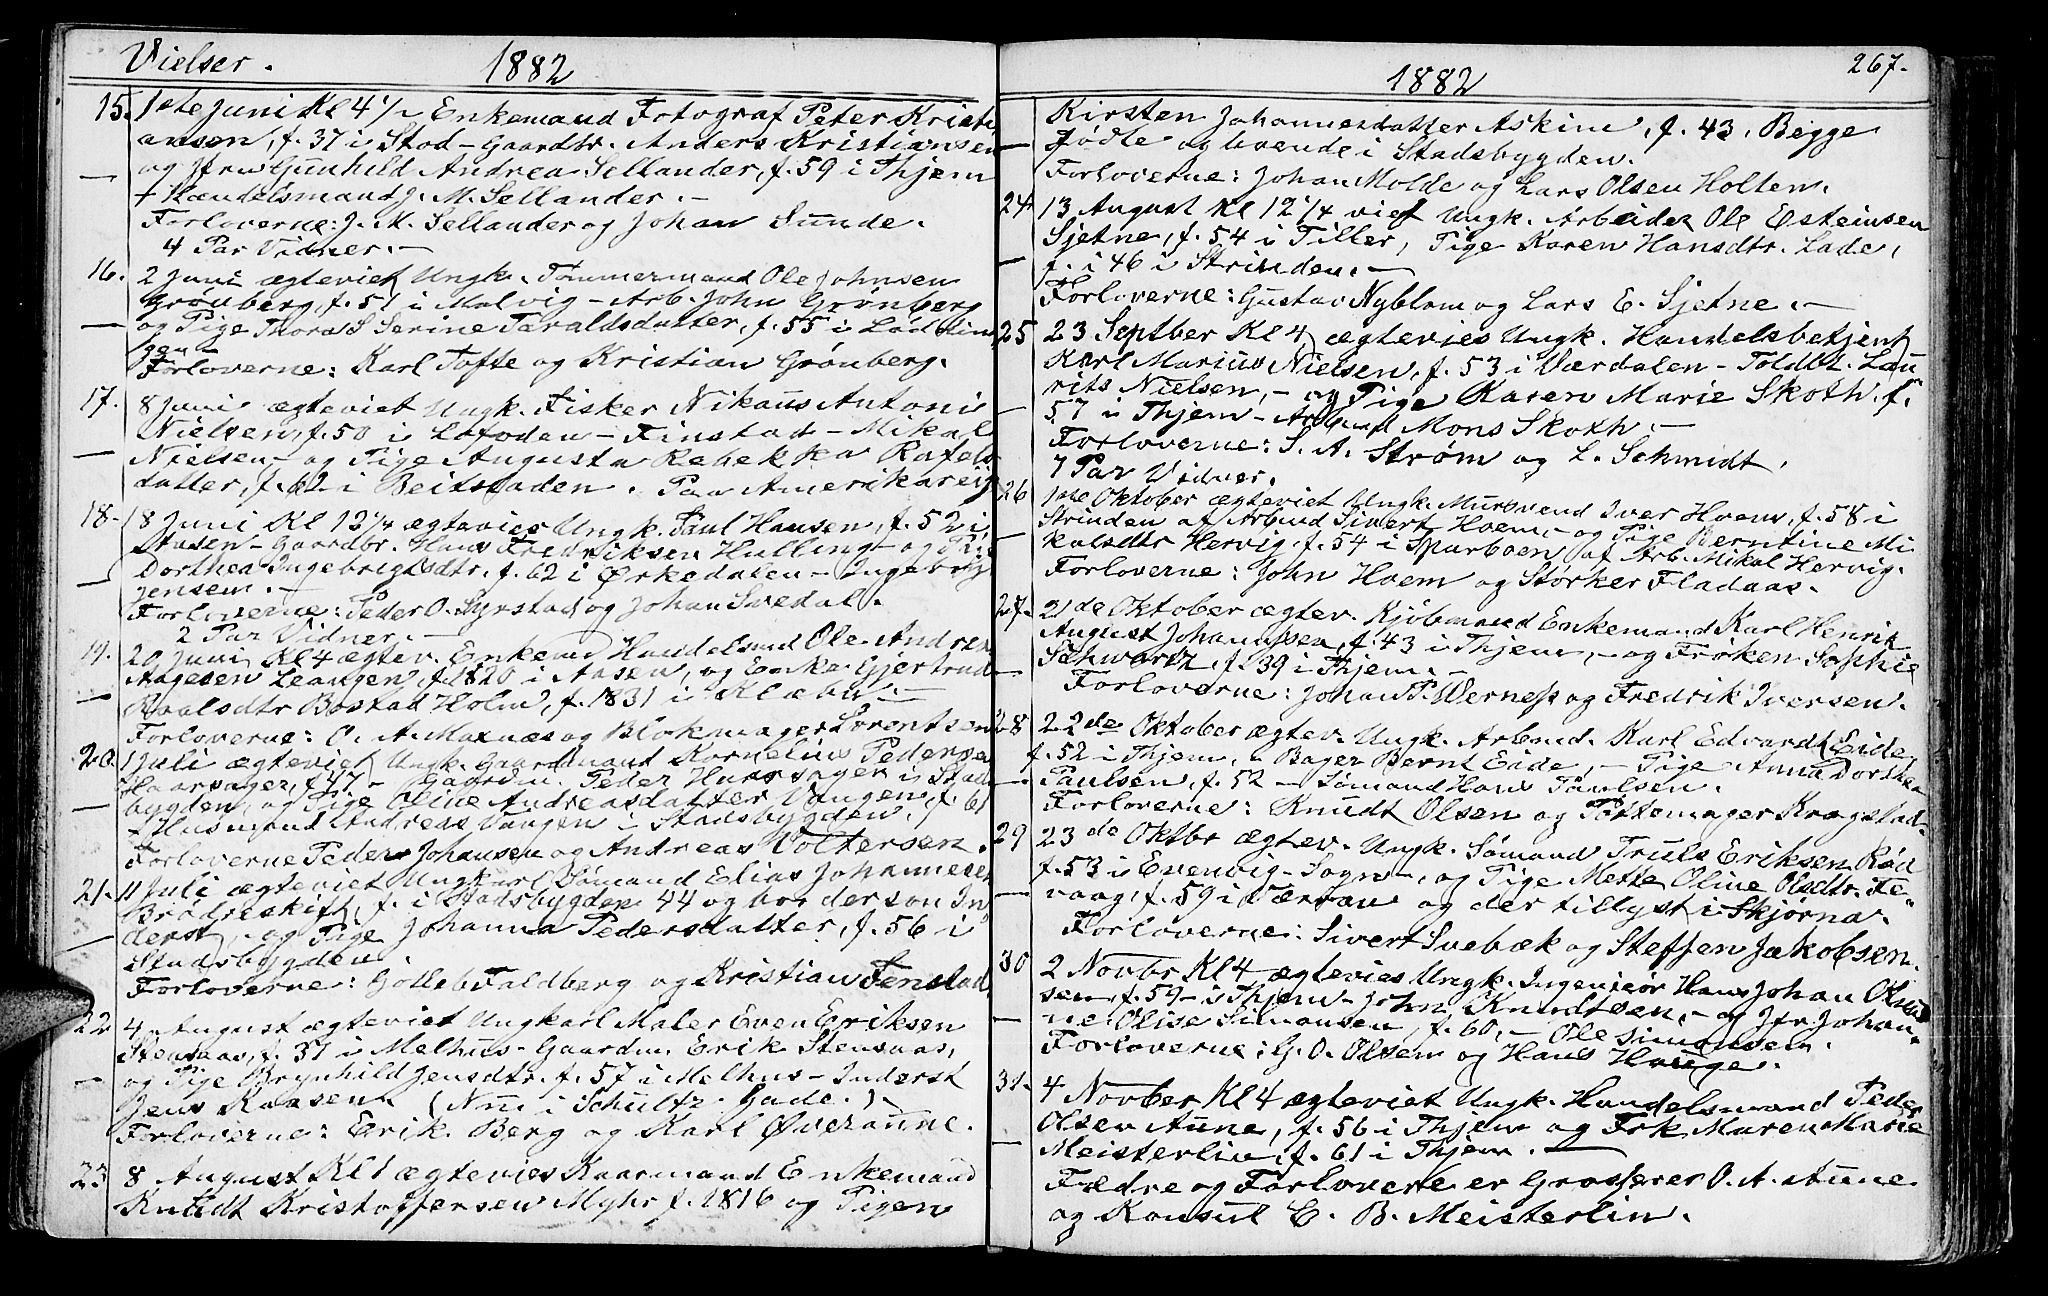 Vielser.
1882
15. 1ste Juni Kl 4 1/2 Enkemand Fotograf Peter Kristi
ansen, f. 37 i Stod - Gaardbr. Anders Kristiansen
og Jfru Gunhild Andrea Sellander, f. 59 i Thjem
+ Handelsmand J. M. Sellander. -
Forloverne: J. M. Sellander og Johan Sunde.
4 Par Vidner. -
16. 2 Juni ægteviet Ungk. Tømmermand Ole Johnsen
Grønberg, f. 51 i Malvig - Arb. John Grønberg
og Pige Thora S Serine Taraldsdatter, f. 55 i Lødding
gen
Forloverne: Karl Tofte og Kristian Grønberg.
17. 8 Juni ægteviet Ungk. Fisker Nikaus Antoni
Nielsen, f. 50 i Lofoden - Finstad - Mikal
Nielsen - og Pige Augusta Rebekka Rafels
datter, f. 62 i Beitstaden. Paa Amerikareis
18. 18 Juni Kl 12 1/4 ægtevies Ungk. Paul Hansen, f. 52 i
Aasen - Gaardbr. Hans Fredriksen Hulling - og Pi
Dorthea Ingebrigtsdtr. f. 62 i Ørkedalen - Ingebrig
jensen. -
Forloverne: Peder O. Syrstad og Johan Svedal.
2 Par Vidner. -
19. 20 Juni Kl 4 ægtev. Enkemd Handelsmd Ole Andreas
Aagesen Leangen, f. 1820 i Aasen, og Enke Gjertrud
Roalsdtr Bostad Holm, f. 1831 i Klæbu. -
Forloverne: O. A. Moxnæs og Blokmager Lorentsen
20. 1 Juli ægteviet Ungk. Gaardmand Kornelius Pedersen
Haarsager, f. 47 - Gaardm. Peder Haarsager i Stads
bygden, og Pige Oline Andreasdatter Vangen, f. 61
+ Husmand Andreas Vangen i Stadsbygden,
Forloverne Peder Johansen og Andreas Voltersen.
21. 11 Juli ægteviet Ungkarl Sømand Elias Johannesen
Brødreskift, f. i Stadsbygden 44 og bor der som In
derst, - og Pige Johanna Pedersdatter, f. 56 i
Stadsbygden
Forloverne: Gotleb Faldberg og Kristian Fenstad.
22 4 August ægteviet Ungkarl Maler Even Eriksen
Stensaas, f. 37 i Melhus - Gaardm. Erik Stensaas,
og Pige Brynhild Jensdtr. f. 57 i Melhus - Inderst
Jens Kaasen. (Nu i Schultz Gade.) -
Forloverne: Erik Berg og Karl Øveraune.
23 8 August Kl 1 ægtevies Kaarmand Enkemand
Knudt Kristoffersen Myhr f. 1816 og Pigen
267.
1882
Kirsten Johannesdatter Askim, f. 43. Begge
fødte og boende i Stadsbygden.
Forloverne: Johan Molde og Lars Olsen Holten.
24 13 August Kl 12 1/4 viet Ungk. Arbeider Ole Esteinsen
Sjetne, f. 54 i Tiller, Pige Karen Hansdtr. Lade,
f. i 46 i Strinden. -
Forloverne: Gustav Nyblom og Lars E. Sjetne. -
25 23 Septber Kl 4 ægtevies Ungk. Handelsbetjent
Karl Marius Nielsen, f. 53 i Værdalen - Toldbt. Lau
rits Nielsen, - og Pige Karen Marie Skoth. f.
57 i Thjem - Arbmd Mons Skoth. -
Forloverne: S. A. Strøm og L. Schmidt.
7 Par Vidner.
26 1ste Oktober ægteviet Ungk. Mursvend Iver Hoem, f. 58 i
Strinden af Arbmd Sivert Hoem, - og Pige Berntine Mi
kalsdtr Hervig. f. 54 i Sparboen af Arb. Mikal Hervig.
Forloverne: John Hoem og Størker Fladaas.
27. 21de Oktober ægtev. Kjøbmand Enkemand Karl Henrik
August Johannssen, f. 43 i Thjem, - og Frøken Sophie
Schwartz, f. 39 i Thjem. -
Forloverne: Johan P. Werness og Fredrik Iversen.
28 22de Oktober ægtev. Ungk. Arbmd. Karl Edvardt Eide,
f. 52 i Thjem, - Bager Bernt Eide, - Pige Anna Dorthea
Paulsen, f. 52 - Sømand Hans Paulsen.
Forloverne: Knudt Olsen og Pottemager Kragstad.
29 23de Oktbr ægtev. Ungk. Sømand Truls Eriksen Rød
f. 53 i Evenvig - Sogn -, og Pige Mette Oline Olsdtr. Fe-
vaag, f. 59 i Værran og der tillyst i Skjørna.
Forloverne: Sivert Svebæk og Steffen Jakobsen.
30 2 Novbr Kl 4 ægtevies Ungk. Ingeniør Hans Johan Olaus
sen, f. 59 - i Thjem - John Knudtsen, - og Jfr. Johan-
ne Olise Simonsen, f. 60, - Ole Simonsen.
Forloverne: G. O. Olsen og Hans Hauge.
31. 4 Novber Kl 4 ægteviet Ungk. Handelsmand Peder
Olsen Aune, f. 56 i Thjem og Frk Maren Marie
Meisterlin, f. 61 i Thjem. -
Fædre og Forloverne er Grosserer O. A. Aune
og Konsul C. B. Meisterlin.